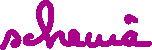 schemă